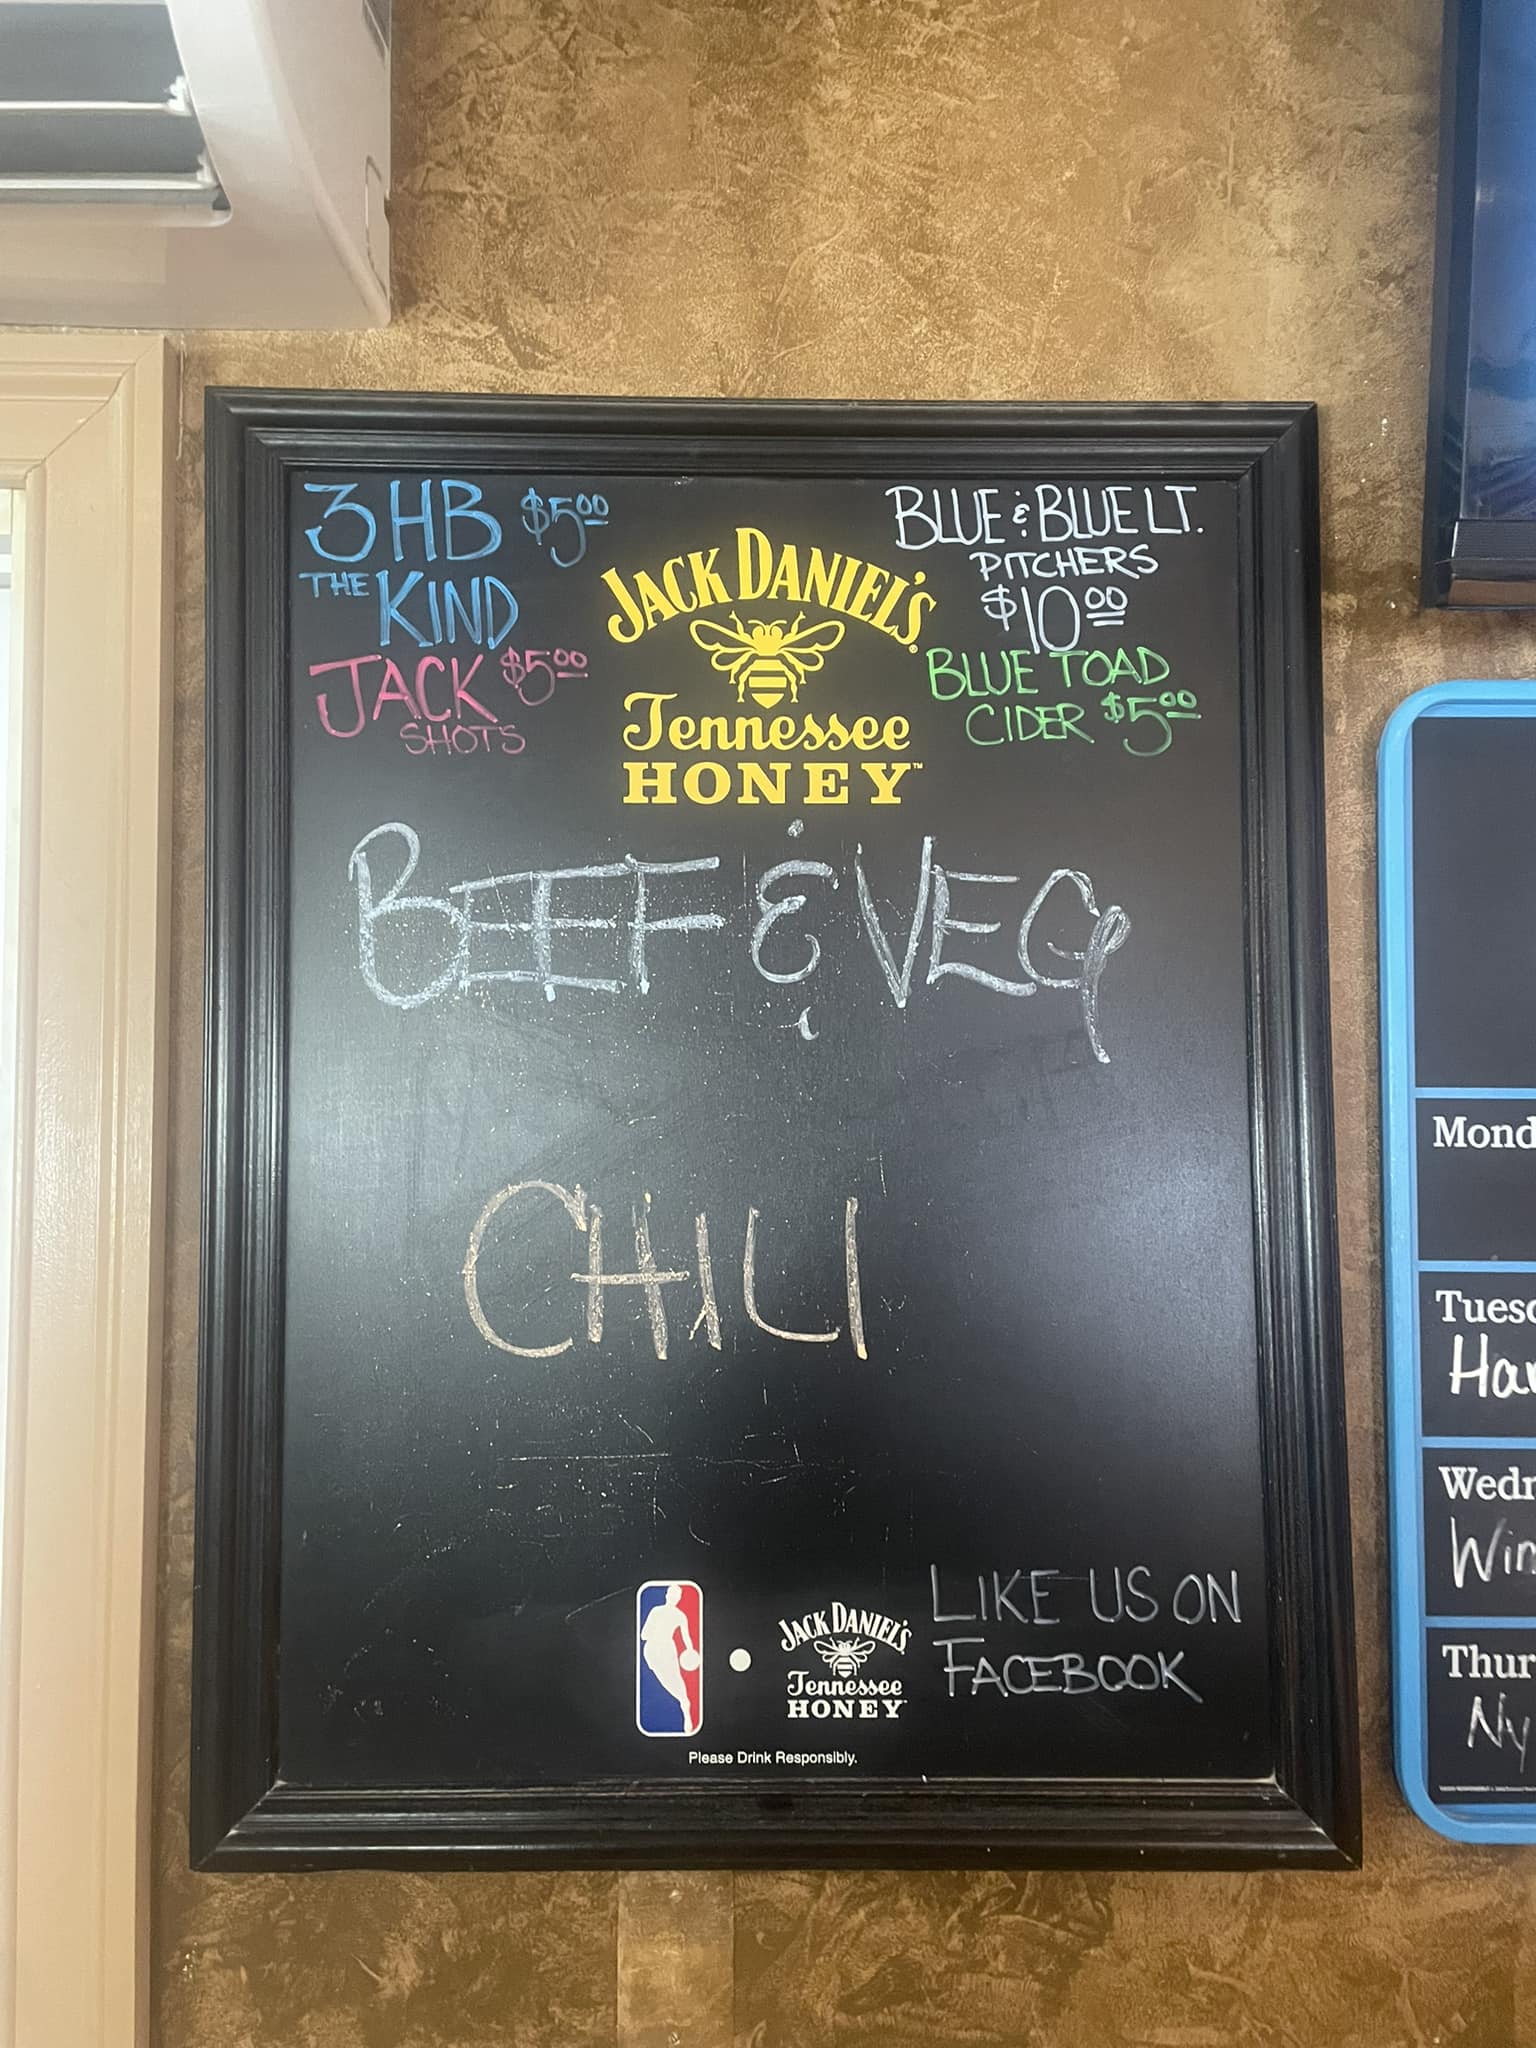 3HB $5.00
THE KIND
JACK $5.00
SHOTS
BLUE & BLUE LT.
PITCHERS
$10.00
BLUE TOAD
CIDER $5.00
JACK DANIEL'S®
Tennessee
HONEY™
BEEF & VEG
CHILI
JACK DANIEL'S
Tennessee
HONEY
LIKE US ON
FACEBOOK
Please Drink Responsibly.
Mond
Tuesd
Har
Wedn
Win
Thur
Ny